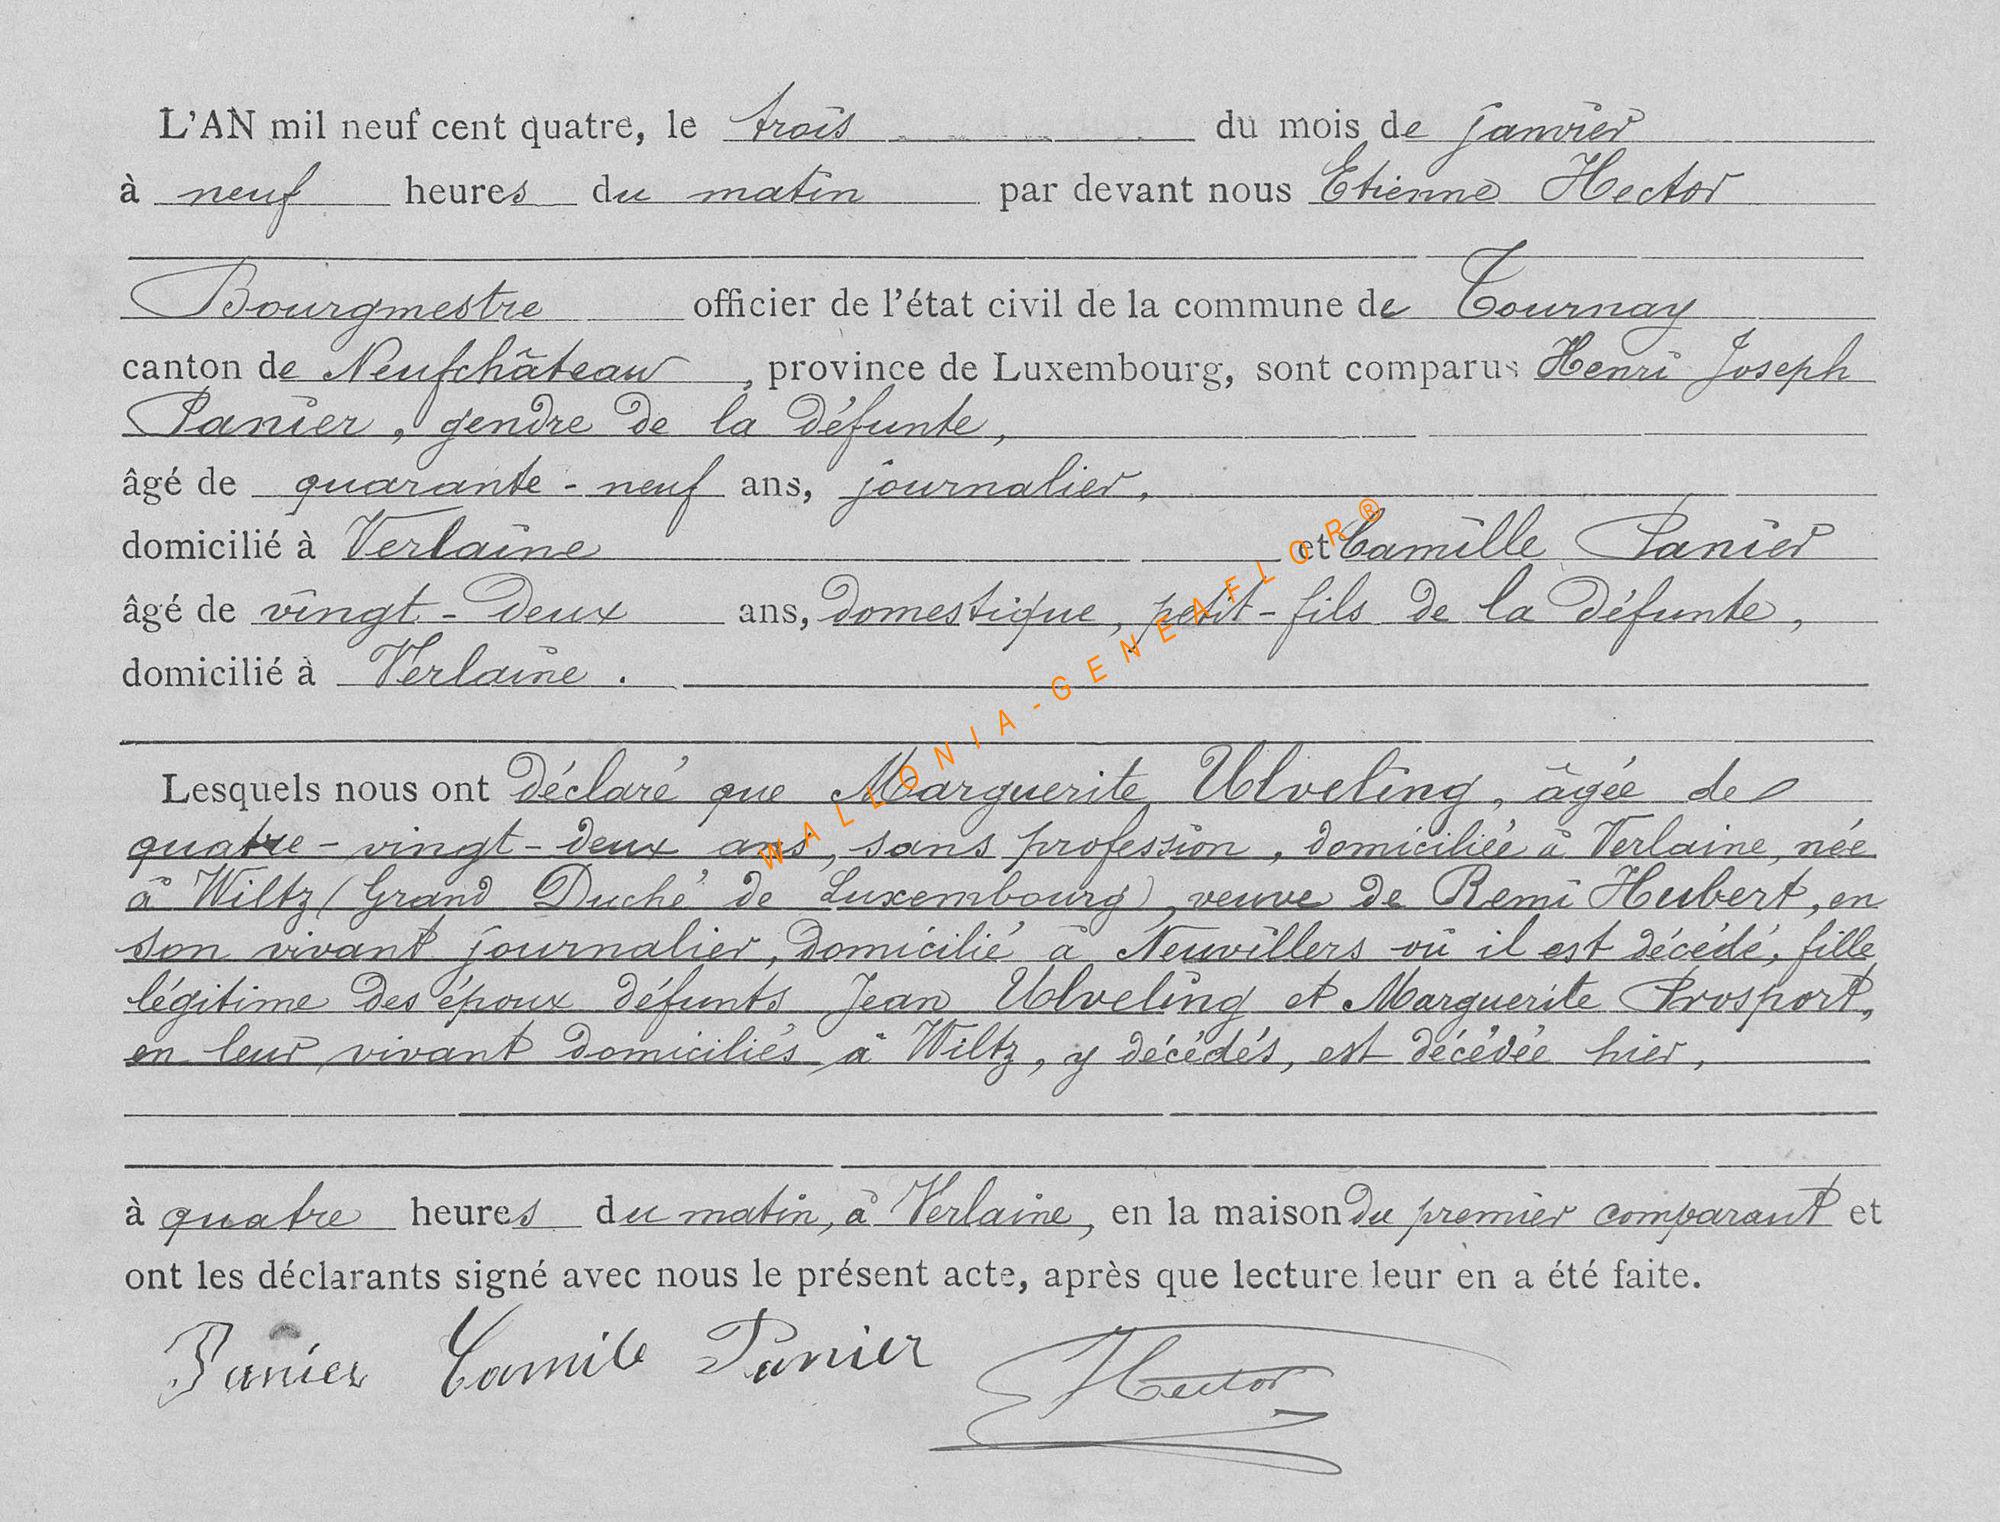 L'AN mil neuf cent quatre, le trois du mois de janvier
à neuf heures du matin par devant nous Etienne Hector
Bourgmestre officier de l'état civil de la commune de Tournay
canton de Neufchâteau, province de Luxembourg, sont comparus Henri Joseph
Panier, gendre de la défunte,
âgé de quarante-neuf ans, journalier,
domicilié à Verlaine et Camille Panier
âgé de vingt-deux ans, domestique, petit-fils de la défunte,
domicilié à Verlaine.
WALLONIA-GENEAFLOR®
Lesquels nous ont déclaré que Marguerite Ulveling, âgée de
quatre-vingt-deux ans, sans profession, domiciliée à Verlaine, née
à Wiltz (Grand Duché de Luxembourg), veuve de Remi Hubert, en
son vivant journalier, domicilié à Neuvillers où il est décédé, fille
légitime des époux défunts Jean Ulveling et Marguerite Prosport,
en leur vivant domiciliés à Wiltz, y décédés, est décédée hier,
à quatre heures du matin, à Verlaine, en la maison du premier comparant et
ont les déclarants signé avec nous le présent acte, après que lecture leur en a été faite.
Panier Camile Panier Hector